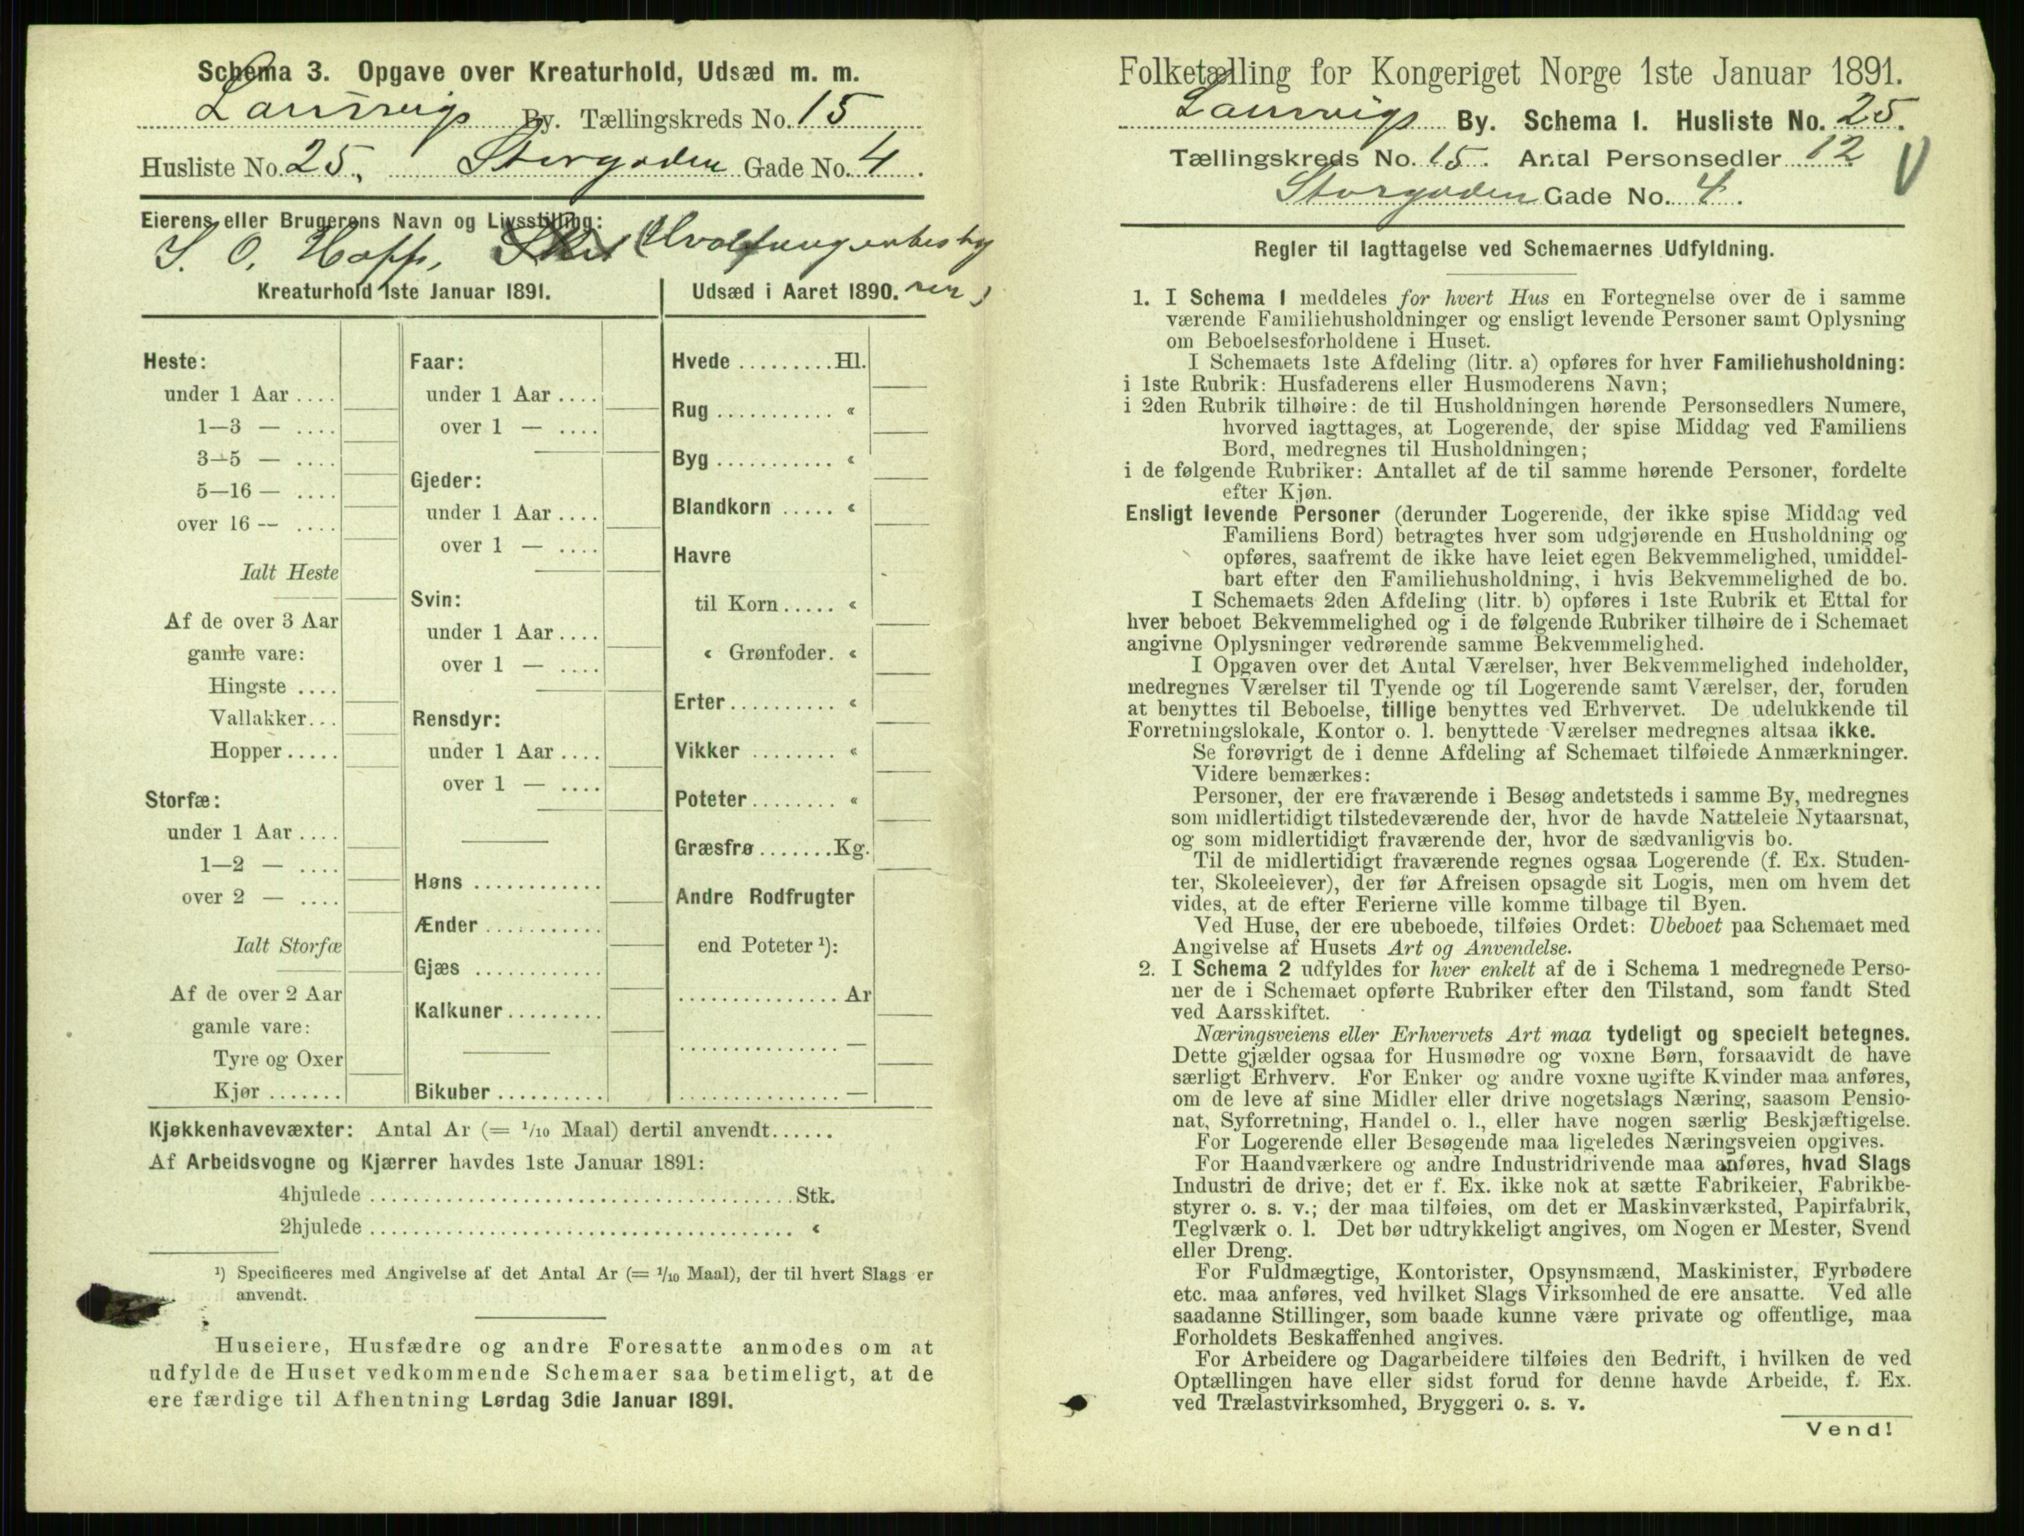 Schema 3. Opgave over Kreaturhold, Udsæd m. m.
Laurvigs By. Tællingskreds No. 15
Husliste No. 25, Storgaden Gade No. 4.
Eierens eller Brugerens Navn og Livsstilling:
S. O. Hoff, Hvalfangerbesty
rer
Kreaturhold 1ste Januar 1891.
Udsæd i Aaret 1890.
Heste:
under 1 Aar ....
1—3 — ....
3—5 — ....
5—16 — ....
over 16 — ....
Ialt Heste
Af de over 3 Aar
gamle vare:
Hingste ....
Vallakker...
Hopper.....
Storfæ:
under 1 Aar ....
1—2 — ....
over 2 — ....
Ialt Storfæ
Af de over 2 Aar
gamle vare:
Tyre og Oxer
Kjør .......
Faar:
under 1 Aar ....
over 1 — ....
Gjeder:
under 1 Aar ....
over 1 — ....
Svin:
under 1 Aar ....
over 1 — ....
Rensdyr:
under 1 Aar ....
over 1 — ....
Høns ............
Ænder ...........
Gjæs ............
Kalkuner.........
Bikuber ..........
Hvede .........Hl.
Rug ........... «
Byg ........... «
Blandkorn ..... «
Havre
til Korn ..... «
« Grønfoder. «
Erter ......... «
Vikker ........ «
Poteter ........ «
Græsfrø .......Kg.
Andre Rodfrugter
end Poteter ¹):
............... Ar
............... —
............... —
Kjøkkenhavevæxter: Antal Ar (= 1/10 Maal) dertil anvendt......
Af Arbeidsvogne og Kjærrer havdes 1ste Januar 1891:
4hjulede ........................................ Stk.
2hjulede ........................................ «
¹) Specificeres med Angivelse af det Antal Ar (= 1/10 Maal), der til hvert Slags er
anvendt.
Huseiere, Husfædre og andre Foresatte anmodes om at
udfylde de Huset vedkommende Schemaer saa betimeligt, at de
ere færdige til Afhentning Lørdag 3die Januar 1891.
Folketælling for Kongeriget Norge 1ste Januar 1891.
Laurvigs By. Schema I. Husliste No. 25.
Tællingskreds No. 15. Antal Personsedler 12
Storgaden Gade No. 4.
Regler til Iagttagelse ved Schemaernes Udfyldning.
1. I Schema 1 meddeles for hvert Hus en Fortegnelse over de i samme
værende Familiehusholdninger og ensligt levende Personer samt Oplysning
om Beboelsesforholdene i Huset.
I Schemaets 1ste Afdeling (litr. a) opføres for hver Familiehusholdning:
i 1ste Rubrik: Husfaderens eller Husmoderens Navn;
i 2den Rubrik tilhøire: de til Husholdningen hørende Personsedlers Numere,
hvorved iagttages, at Logerende, der spise Middag ved Familiens
Bord, medregnes til Husholdningen;
i de følgende Rubriker: Antallet af de til samme hørende Personer, fordelte
efter Kjøn.
Ensligt levende Personer (derunder Logerende, der ikke spise Middag ved
Familiens Bord) betragtes hver som udgjørende en Husholdning og
opføres, saafremt de ikke have leiet egen Bekvemmelighed, umiddel-
bart efter den Familiehusholdning, i hvis Bekvemmelighed de bo.
I Schemaets 2den Afdeling (litr. b) opføres i 1ste Rubrik et Ettal for
hver beboet Bekvemmelighed og i de følgende Rubriker tilhøire de i Schemaet
angivne Oplysninger vedrørende samme Bekvemmelighed.
I Opgaven over det Antal Værelser, hver Bekvemmelighed indeholder,
medregnes Værelser til Tyende og til Logerende samt Værelser, der, foruden
at benyttes til Beboelse, tillige benyttes ved Erhvervet. De udelukkende til
Forretningslokale, Kontor o. l. benyttede Værelser medregnes altsaa ikke.
Se forøvrigt de i denne Afdeling af Schemaet tilføiede Anmærkninger.
Videre bemærkes:
Personer, der ere fraværende i Besøg andetsteds i samme By, medregnes
som midlertidigt tilstedeværende der, hvor de havde Natteleie Nytaarsnat,
og som midlertidigt fraværende der, hvor de sædvanligvis bo.
Til de midlertidigt fraværende regnes ogsaa Logerende (f. Ex. Studen-
ter, Skoleelever), der før Afreisen opsagde sit Logis, men om hvem det
vides, at de efter Ferierne ville komme tilbage til Byen.
Ved Huse, der ere ubeboede, tilføies Ordet: Ubeboet paa Schemaet med
Angivelse af Husets Art og Anvendelse.
2. I Schema 2 udfyldes for hver enkelt af de i Schema 1 medregnede Perso-
ner de i Schemaet opførte Rubriker efter den Tilstand, som fandt Sted
ved Aarsskiftet.
Næringsveiens eller Erhvervets Art maa tydeligt og specielt betegnes.
Dette gjælder ogsaa for Husmødre og voxne Børn, forsaavidt de have
særligt Erhverv. For Enker og andre voxne ugifte Kvinder maa anføres,
om de leve af sine Midler eller drive nogetslags Næring, saasom Pensio-
nat, Syforretning, Handel o. l., eller have nogen særlig Beskjæftigelse.
For Logerende eller Besøgende maa ligeledes Næringsveien opgives.
For Haandværkere og andre Industridrivende maa anføres, hvad Slags
Industri de drive; det er f. Ex. ikke nok at sætte Fabrikeier, Fabrikbe-
styrer o. s. v.; der maa tilføies, om det er Maskinværksted, Papirfabrik,
Teglværk o. l. Det bør udtrykkeligt angives, om Nogen er Mester, Svend
eller Dreng.
For Fuldmægtige, Kontorister, Opsynsmænd, Maskinister, Fyrbødere
etc. maa anføres, ved hvilket Slags Virksomhed de ere ansatte. Ved alle
saadanne Stillinger, som baade kunne være private og offentlige, maa
Forholdets Beskaffenhed angives.
For Arbeidere og Dagarbeidere tilføies den Bedrift, i hvilken de ved
Optællingen have eller sidst forud for denne havde Arbeide, f. Ex.
ved Trælastvirksomhed, Bryggeri o. s. v.
Vend!